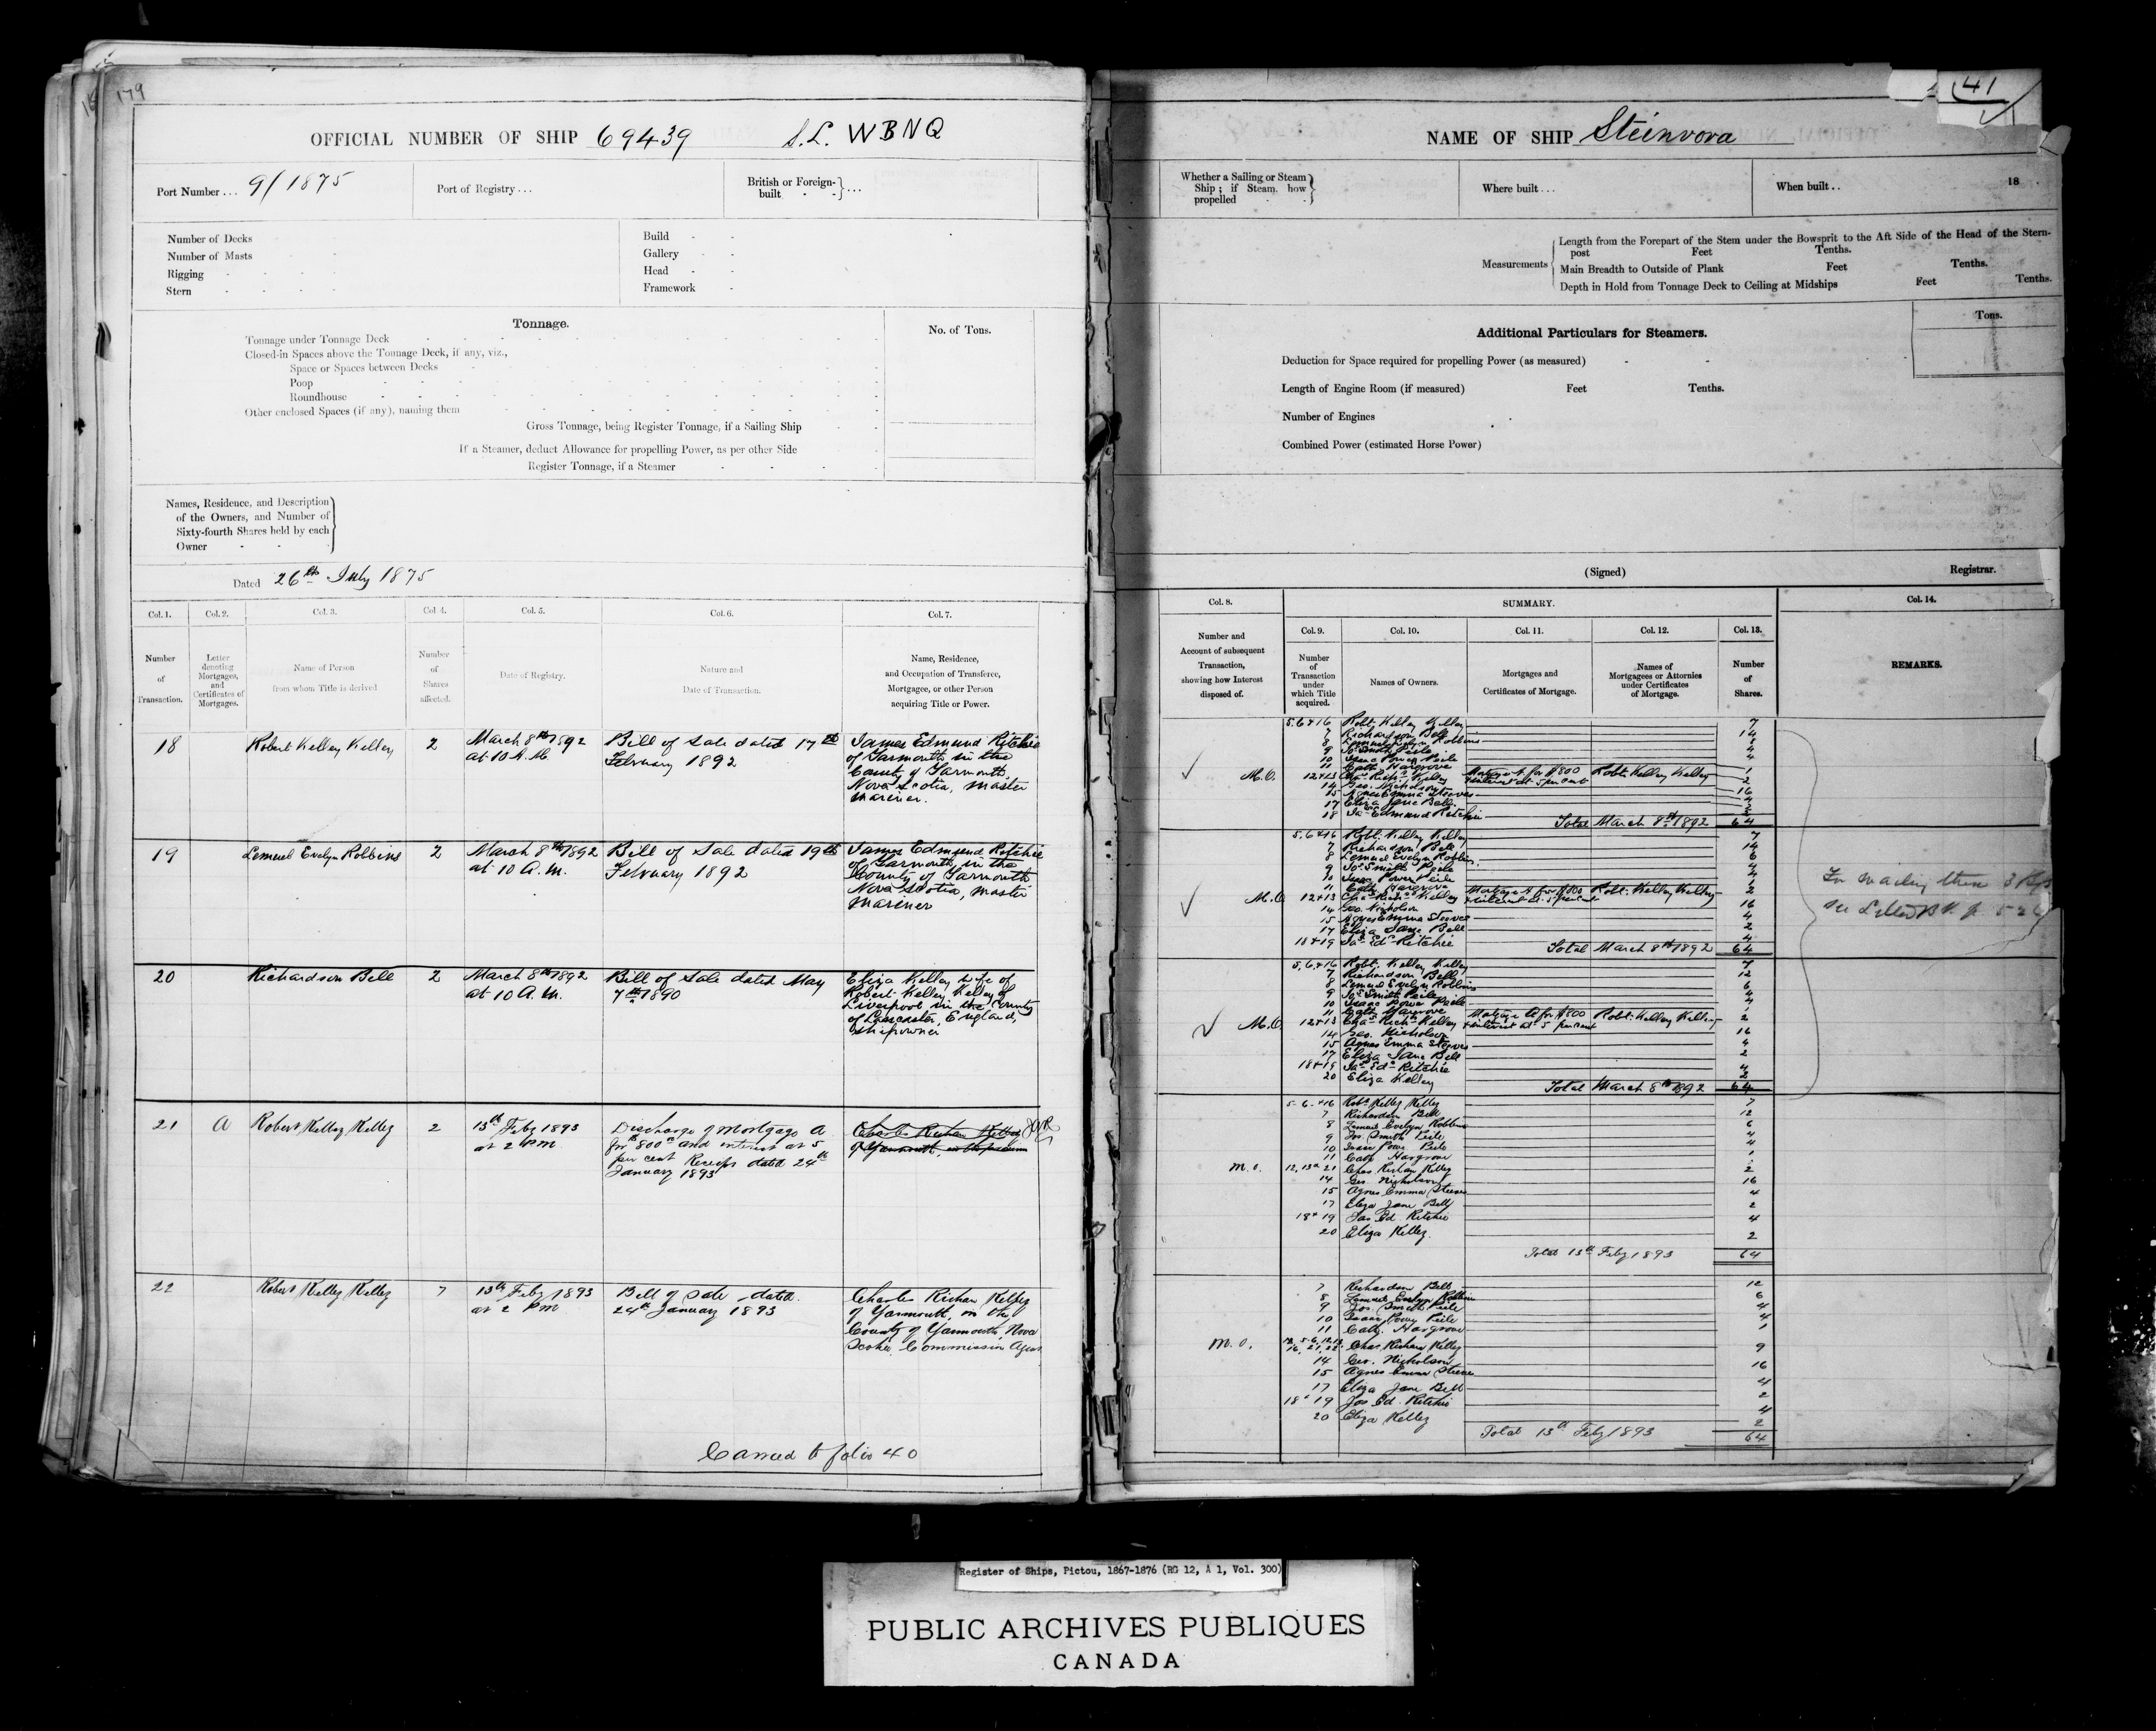 179
OFFICIAL NUMBER OF SHIP 69439 S.L. WBNQ
Port Number ... 9/1875
Port of Registry ...
British or Foreign-built ...
Number of Decks
Number of Masts
Rigging
Stern
Build
Gallery
Head
Framework
Tonnage.
No. of Tons.
Tonnage under Tonnage Deck
Closed-in Spaces above the Tonnage Deck, if any, viz.,
Space or Spaces between Decks
Poop
Roundhouse
Other enclosed Spaces (if any), naming them
Gross Tonnage, being Register Tonnage, if a Sailing Ship
If a Steamer, deduct Allowance for propelling Power, as per other Side
Register Tonnage, if a Steamer
Names, Residence, and Description
of the Owners, and Number of
Sixty-fourth Shares held by each
Owner
Dated 26th July 1875
Col. 1. Col. 2. Col. 3. Col. 4. Col. 5. Col. 6. Col. 7.
Number of Transaction.
Letter denoting Mortgages, and Certificates of Mortgages.
Name of Person from whom Title is derived
Number of Shares affected.
Date of Registry.
Nature and Date of Transaction.
Name, Residence, and Occupation of Transferee, Mortgagee, or other Person acquiring Title or Power.
18 Robert Kelley Kelley 2
March 8th 1892
at 10 A.M.
Bill of Sale dated 17th
February 1892
James Edmund Ritchie
of Yarmouth in the
County of Yarmouth
Nova Scotia, master
mariner.
19 Lemuel Evelyn Robbins 2
March 8th 1892
at 10 A.M.
Bill of Sale dated 19th
February 1892
James Edmund Ritchie
of Yarmouth in the
County of Yarmouth
Nova Scotia, master
mariner
20 Richardson Bell 2
March 8th 1892
at 10 A.M.
Bill of Sale dated May
7th 1890
Eliza Kelley wife of
Robert Kelley Kelley of
Liverpool in the County
of Lancaster, England,
shipowner
21 A Robert Kelley Kelley 2
13th Feby 1893
at 2 PM
Discharge of Mortgage A
for $800 and interest at 5
per cent Receipt dated 24th
January 1893
22 Robert Kelley Kelley 7
13th Feby 1893
at 2 PM
Bill of Sale dated
24th January 1893
Charles Richan Kelley
of Yarmouth, in the
County of Yarmouth, Nova
Scotia, Commission Agent
Carried to folio 40
41
NAME OF SHIP Steinvora
Whether a Sailing or Steam
Ship; if Steam, how
propelled
Where built ...
When built .. 18
Measurements
Length from the Forepart of the Stem under the Bowsprit to the Aft Side of the Head of the Stern-
post Feet Tenths.
Main Breadth to Outside of Plank Feet Tenths.
Depth in Hold from Tonnage Deck to Ceiling at Midships Feet Tenths.
Additional Particulars for Steamers.
Tons.
Deduction for Space required for propelling Power (as measured)
Length of Engine Room (if measured) Feet Tenths.
Number of Engines
Combined Power (estimated Horse Power)
(Signed) Registrar.
Col. 8. SUMMARY. Col. 14.
Col. 9. Col. 10. Col. 11. Col. 12. Col. 13.
Number and Account of subsequent Transaction, showing how Interest disposed of.
Number of Transaction under which Title acquired.
Names of Owners.
Mortgages and Certificates of Mortgage.
Names of Mortgagees or Attornies under Certificates of Mortgage.
Number of Shares.
REMARKS.
M.O.
5.6+16 Robt. Kelley Kelley 7
7 Richardson Bell 14
8 Lemuel Evelyn Robbins
9 Jos. Smith Peile 4
10 Isaac Power Peile 4
11 Cath. Hargrove 1
12+13 Chas. Richn. Kelley Mortgage A for $800 Robt. Kelley Kelley 2
+ interest at 5 per cent
14 Geo. Nicholson 16
15 Agnes Emma Steeves
17 Eliza Jane Bell
18 Jas. Edmund Ritchie
Total March 8th 1892 64
M.O.
5.6+16 Robt. Kelley Kelley 7
7 Richardson Bell 14
8 Lemuel Evelyn Robbins 6
9 Jos. Smith Peile 4
10 Isaac Power Peile 4
11 Cath. Hargrove 1
12+13 Chas. Richn. Kelley Mortgage A for $800 Robt. Kelley Kelley 2
+ interest at 5 per cent
14 Geo. Nicholson 16
15 Agnes Emma Steeves 4
17 Eliza Jane Bell 2
18+19 Jas. Ed. Ritchie 4
Total March 8th 1892 64
M.O.
5.6+16 Robt. Kelley Kelley 7
7 Richardson Bell 12
8 Lemuel Evelyn Robbins 6
9 Jos. Smith Peile 4
10 Isaac Power Peile 4
11 Cath Hargrove 1
12+13 Chas. Richn. Kelley Mortgage A for $800 Robt. Kelley Kelley 2
+ interest at 5 per cent
14 Geo. Nicholson 16
15 Agnes Emma Steeves 4
17 Eliza Jane Bell 2
18+19 Jas. Ed. Ritchie 4
20 Eliza Kelley 2
Total March 8th 1892 64
M.O.
5.6.+16 Robt. Kelley Kelley 7
7 Richardson Bell 12
8 Lemuel Evelyn Robbins 6
9 Jos. Smith Peile 4
10 Isaac Power Peile 4
11 Cath Hargrove 1
12, 13 + 21 Chas Richan Kelley 2
14 Geo. Nicholson 16
15 Agnes Emma Steeves 4
17 Eliza Jane Bell 2
18+19 Jas Ed. Ritchie 4
20 Eliza Kelley. 2
Total 13th Feby 1893 64
M.O.
7 Richardson Bell 12
8 Lemuel Evelyn Robbins 6
9 Jos. Smith Peile 4
10 Isaac Power Peile 4
11 Cath. Hargrove 1
Chas. Richan Kelley 9
14 Geo. Nicholson 16
15 Agnes Emma Steeves 4
17 Eliza Jane Bell 2
18+19 Jas Ed. Ritchie 4
20 Eliza Kelley 2
Total 13th Feby 1893 64
Register of Ships, Pictou, 1867-1876 (RG 12, A 1, Vol. 300)
PUBLIC ARCHIVES PUBLIQUES
CANADA